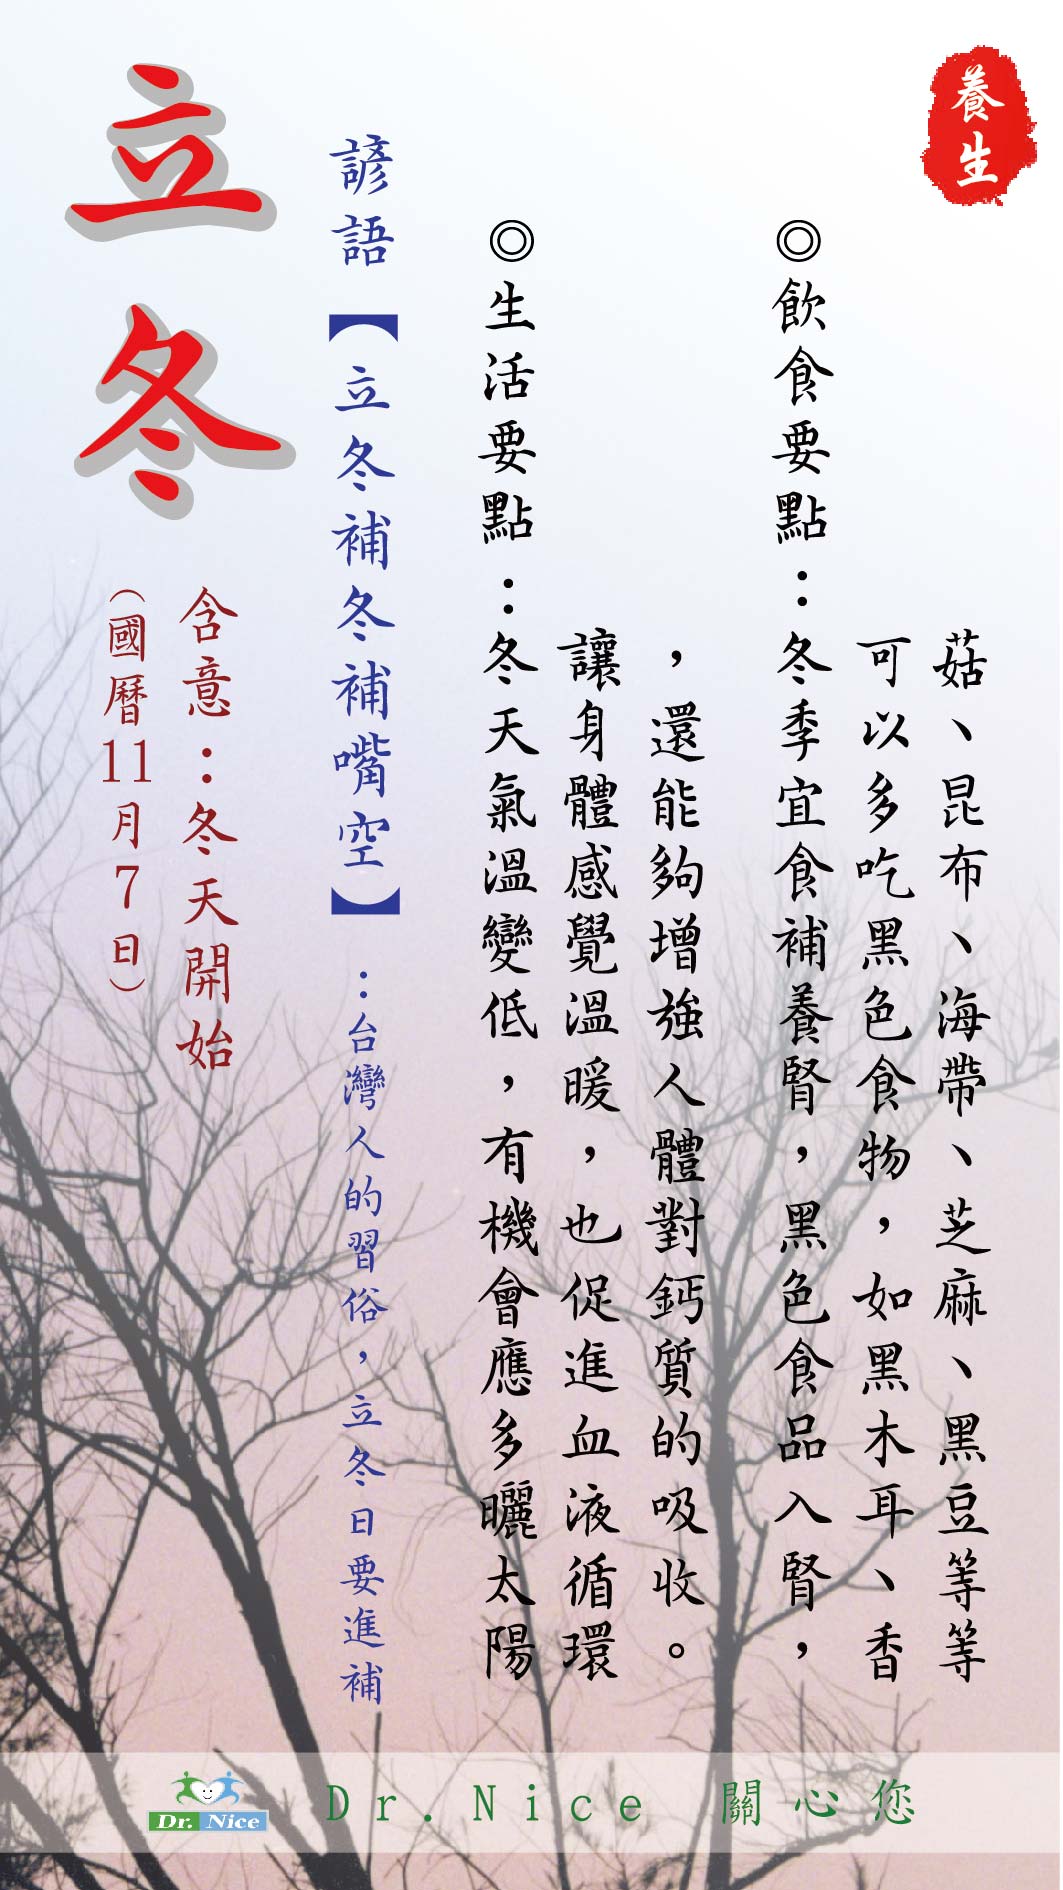 立冬
含意：冬天開始
（國曆11月7日）
諺語【立冬補冬補嘴空】：台灣人的習俗，立冬日要進補
◎生活要點：冬天氣溫變低，有機會應多曬太陽
讓身體感覺溫暖，也促進血液循環
，還能夠增強人體對鈣質的吸收。
◎飲食要點：冬季宜食補養腎，黑色食品入腎，
可以多吃黑色食物，如黑木耳、香
菇、昆布、海帶、芝麻、黑豆等等
養生
Dr. Nice
Dr.Nice 關心您